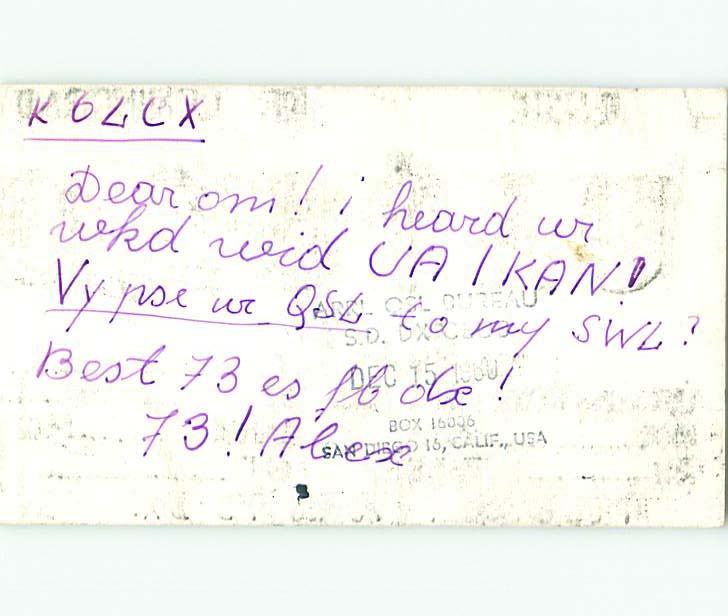 K6LCX
Dear om! i heard ur
wkd wid UA1KAN!
Vy pse ur QSL to my SWL?
Best 73 es fb dx!
73! Alex
QSL BUREAU
S.D. DX
DEC 15 1960
BOX 16006
SAN DIEGO 16, CALIF., USA